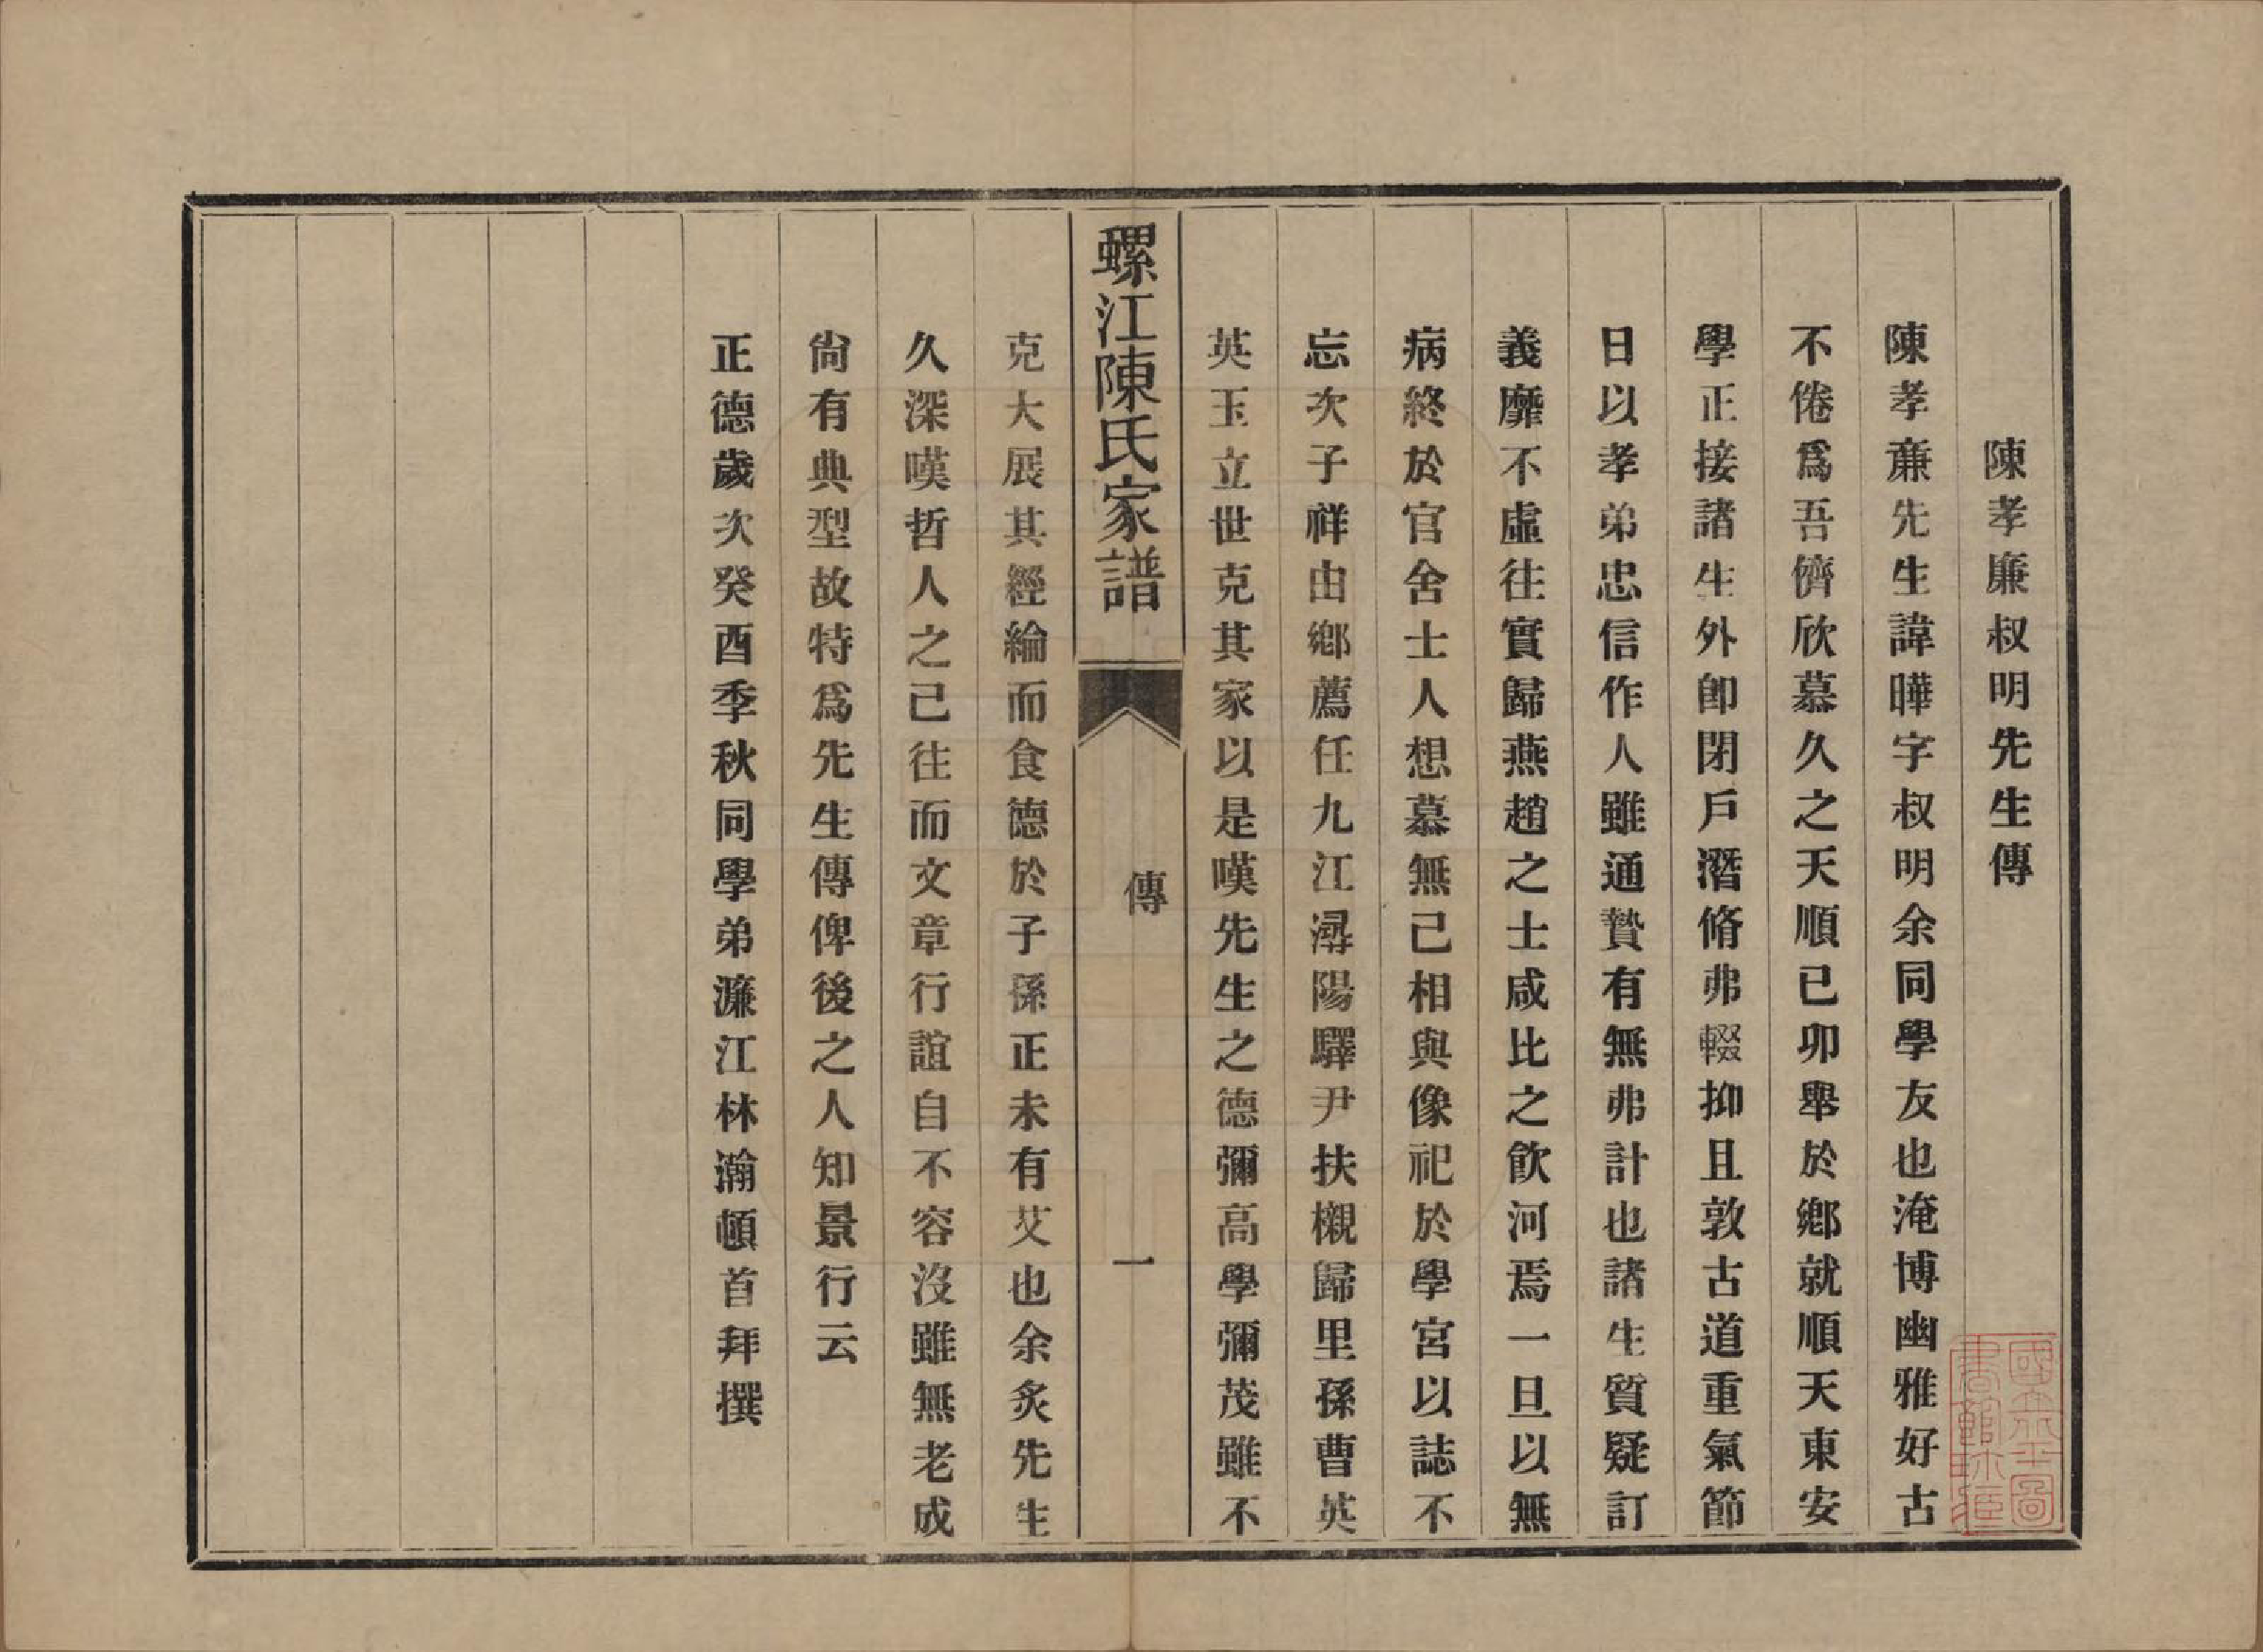 陳孝廉叔明先生傳
陳孝亷先生諱曄字叔明余同學友也淹博幽雅好古
不倦爲吾儕欣慕久之天順己卯舉於鄉就順天東安
學正接諸生外卽閉戶潛脩弗輟抑且敦古道重氣節
日以孝弟忠信作人雖通贄有無弗計也諸生質疑訂
義靡不虛往實歸燕趙之士咸比之飮河焉一旦以無
病終於官舍士人想慕無已相與像祀於學宮以誌不
忘次子祥由鄉薦任九江潯陽驛尹扶櫬歸里孫曹英
英玉立世克其家以是嘆先生之德彌高學彌茂雖不
螺江陳氏家譜
傳
一
克大展其經綸而食德於子孫正未有艾也余炙先生
久深嘆哲人之已往而文章行誼自不容沒雖無老成
尙有典型故特爲先生傳俾後之人知景行云
正德歲次癸酉季秋同學弟濂江林瀚頓首拜撰